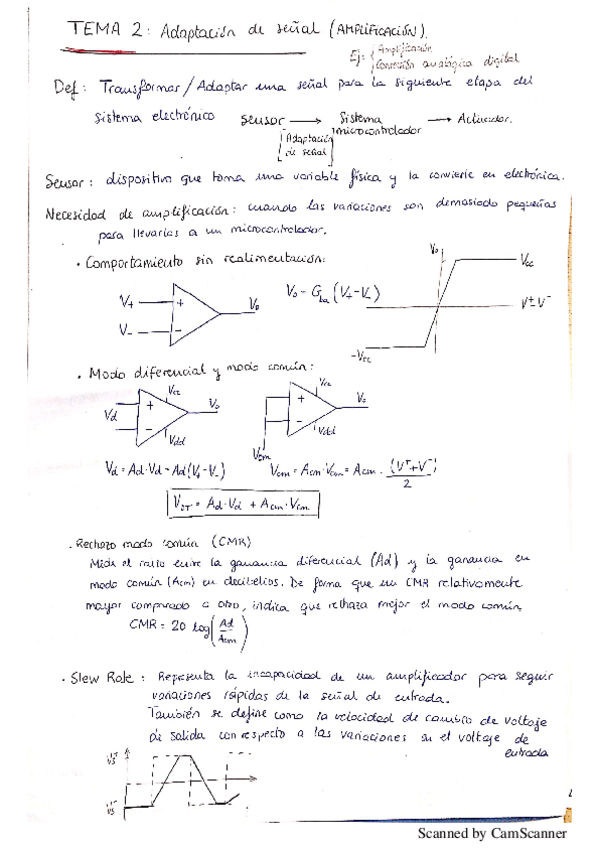 TEMA 2: Adaptación de señal (AMPLIFICACIÓN).
Ej: { Amplificación
Conversión analógica digital
Def: Transformar/Adaptar una señal para la siguiente etapa del
sistema electrónico sensor → Sistema microcontrolador → Actuador.
[Adaptación de señal]
Sensor: dispositivo que toma una variable física y la convierte en electrónica.
Necesidad de amplificación: cuando las variaciones son demasiado pequeñas
para llevarlas a un microcontrolador.
· Comportamiento sin realimentación:
V+
V-
+
-
Vo
Vo = Gba (V+-V-)
Vo
Vcc
V+ V-
-Vcc
· Modo diferencial y modo común:
Vd
+
-
Vcc
Vdd
Vo
+
-
Vcc
Vdd
Vo
Vcm
Vd = Ad·Vd = Ad(V+-V-) Vcm = Acm·Vcm = Acm · (V++V-)/2
VOT = Ad·Vd + Acm·Vcm
· Rechazo modo común (CMR)
Mide el ratio entre la ganancia diferencial (Ad) y la ganancia en
modo común (Acm) en decibelios. De forma que un CMR relativamente
mayor comparado a otro, indica que rechaza mejor el modo común.
CMR = 20 log(Ad/Acm)
· Slew Rate: Representa la incapacidad de un amplificador para seguir
variaciones rápidas de la señal de entrada.
También se define como la velocidad de cambio de voltaje
de salida con respecto a las variaciones en el voltaje de
entrada
Scanned by CamScanner